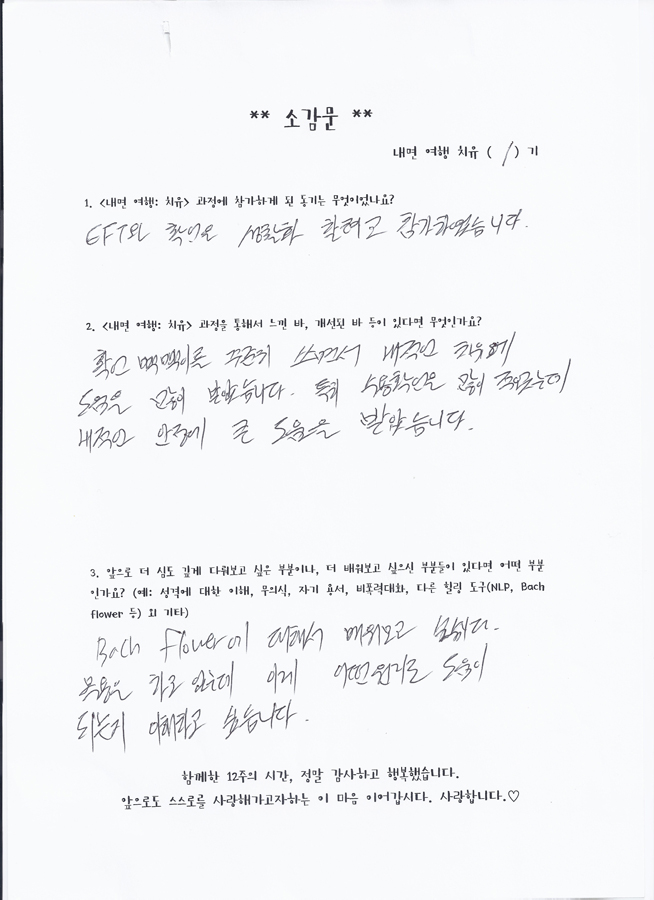 ** 소감문 **
내면 여행 치유 ( / ) 기
1. <내면 여행: 치유> 과정에 참가하게 된 동기는 무엇이었나요?
EFT와 확언을 생활화 할려고 참가하였습니다.
2. <내면 여행: 치유> 과정을 통해서 느낀 바, 개선된 바 등이 있다면 무엇인가요?
확언 꾸준히 쓰면서 내적인 치유에
도움을 많이 받았습니다. 특히 수용확언을 많이
내적인 안정에 큰 도움을 받았습니다.
3. 앞으로 더 심도 깊게 다뤄보고 싶은 부분이나, 더 배워보고 싶으신 부분들이 있다면 어떤 부분
인가요? (예: 성격에 대한 이해, 무의식, 자기 용서, 비폭력대화, 다른 힐링 도구(NLP, Bach
flower 등) 외 기타)
Bach Flower에 대해서 배워보고 싶습니다.
복용을 하고 있는데 이게 어떤원리로 도움이
되는지 이해하고 싶습니다.
함께한 12주의 시간, 정말 감사하고 행복했습니다.
앞으로도 스스로를 사랑해가고자하는 이 마음 이어갑시다. 사랑합니다.♡